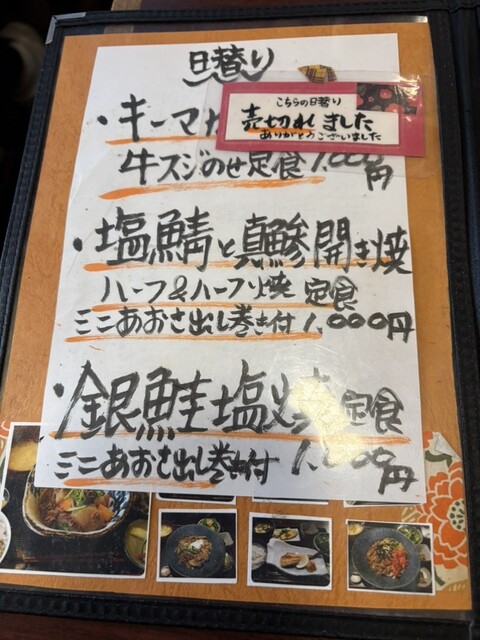 日替り
こちらの日替り
売切れました
ありがとうございました
・キーマカ
牛スジのせ定食 1,000円
・塩鯖と真鯵開き焼
ハーフ&ハーフ焼 定食
ミニあおさ出し巻き付 1,000円
・銀鮭塩焼定食
ミニあおさ出し巻き付 1,000円